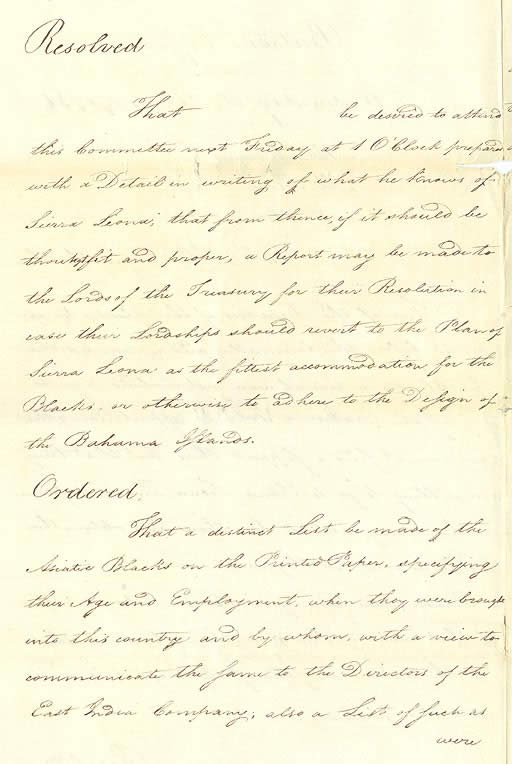 Resolved
That be desired to attend
this Committee next Friday at 1 O'Clock prepared
with a Detail in writing of what he knows of
Sierra Leona; that from thence, if it should be
thought fit and proper, a Report may be made to
the Lords of the Treasury for their Resolution in
case their Lordships should revert to the Plan of
Sierra Leona as the fittest accommodation for the
Blacks, or otherwise to adhere to the Design of
the Bahama Islands.
Ordered,
That a distinct List be made of the
Asiatic Blacks on the Printed Paper, specifying
their Age and Employment, when they were brought
into this country and by whom, with a view to
communicate the same to the Directors of the
East India Company; also a List of such as
were